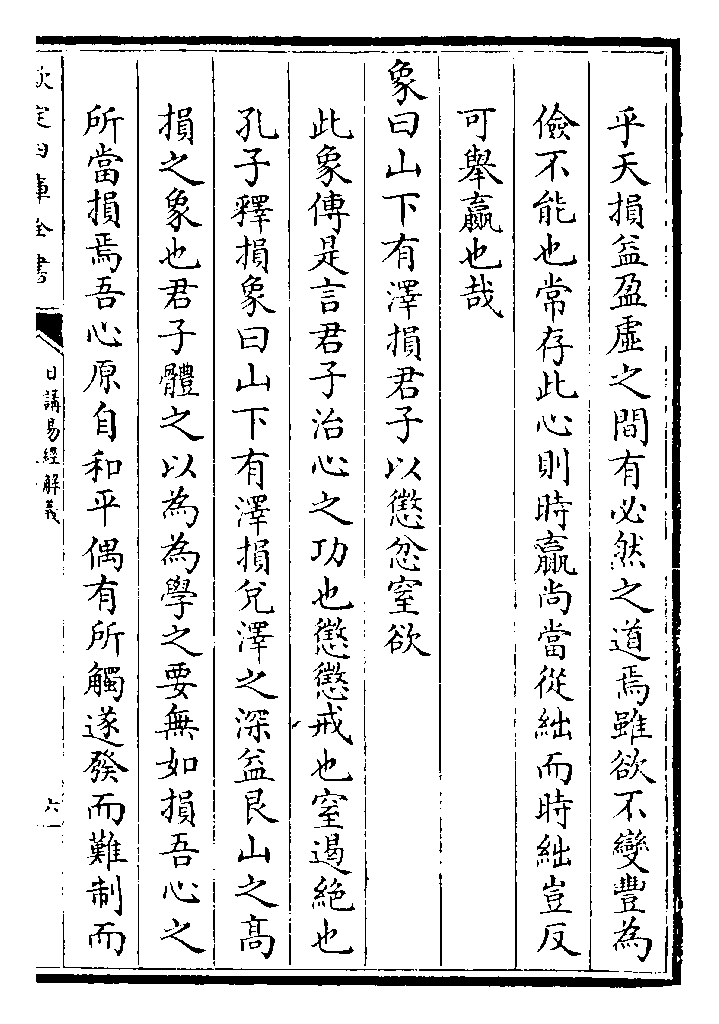 乎天損益盈虛之間有必然之道焉雖欲不變豐為
儉不能也常存此心則時贏尚當從絀而時絀豈反
可舉贏也哉
象曰山下有澤損君子以懲忿窒欲
此象傳是言君子治心之功也懲懲戒也窒遏絶也
孔子釋損象曰山下有澤損兌澤之深益艮山之髙
損之象也君子體之以為為學之要無如損吾心之
所當損焉吾心原自和平偶有所觸遂發而難制而
欽定四庫全書
日講易經解義
六